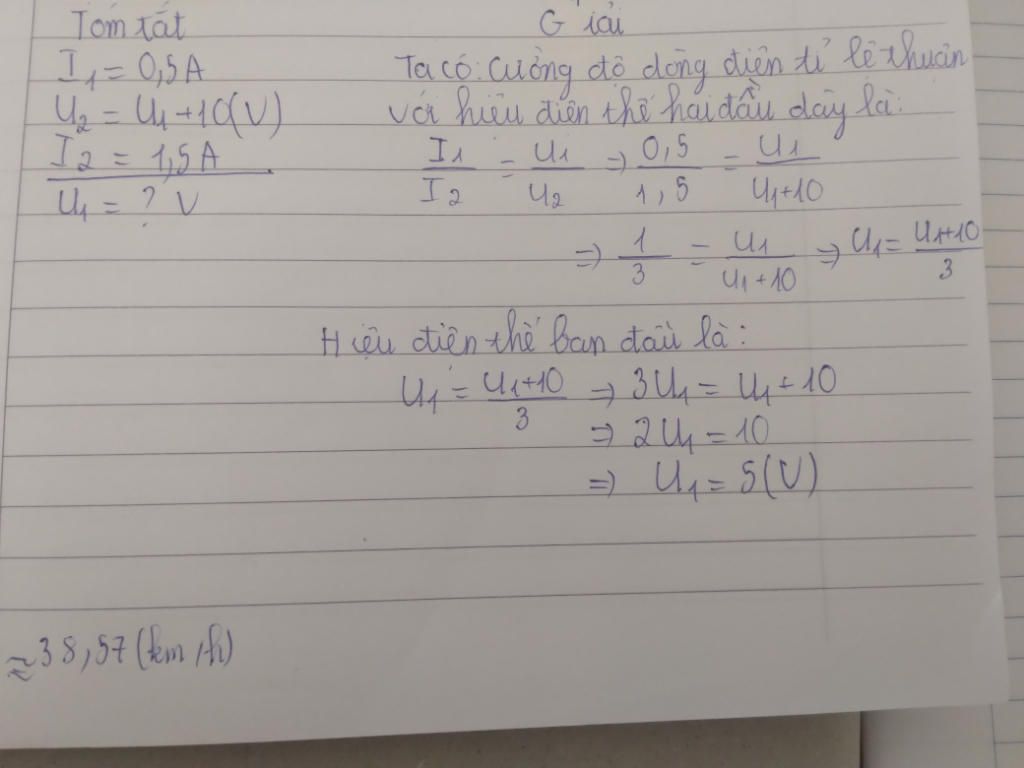 Tóm tắt
I1 = 0,5A
U2 = U1 + 10(V)
I2 = 1,5A
U1 = ? V
Giải
Ta có: Cường độ dòng điện tỉ lệ thuận
với hiệu điện thế hai đầu dây là:
I1/I2 = U1/U2 => 0,5/1,5 = U1/U1+10
=> 1/3 = U1/U1+10 => U1 = U1+10/3
Hiệu điện thế ban đầu là:
U1 = U1+10/3 => 3U1 = U1 + 10
=> 2U1 = 10
=> U1 = 5(V)
≈38,57(km/h)